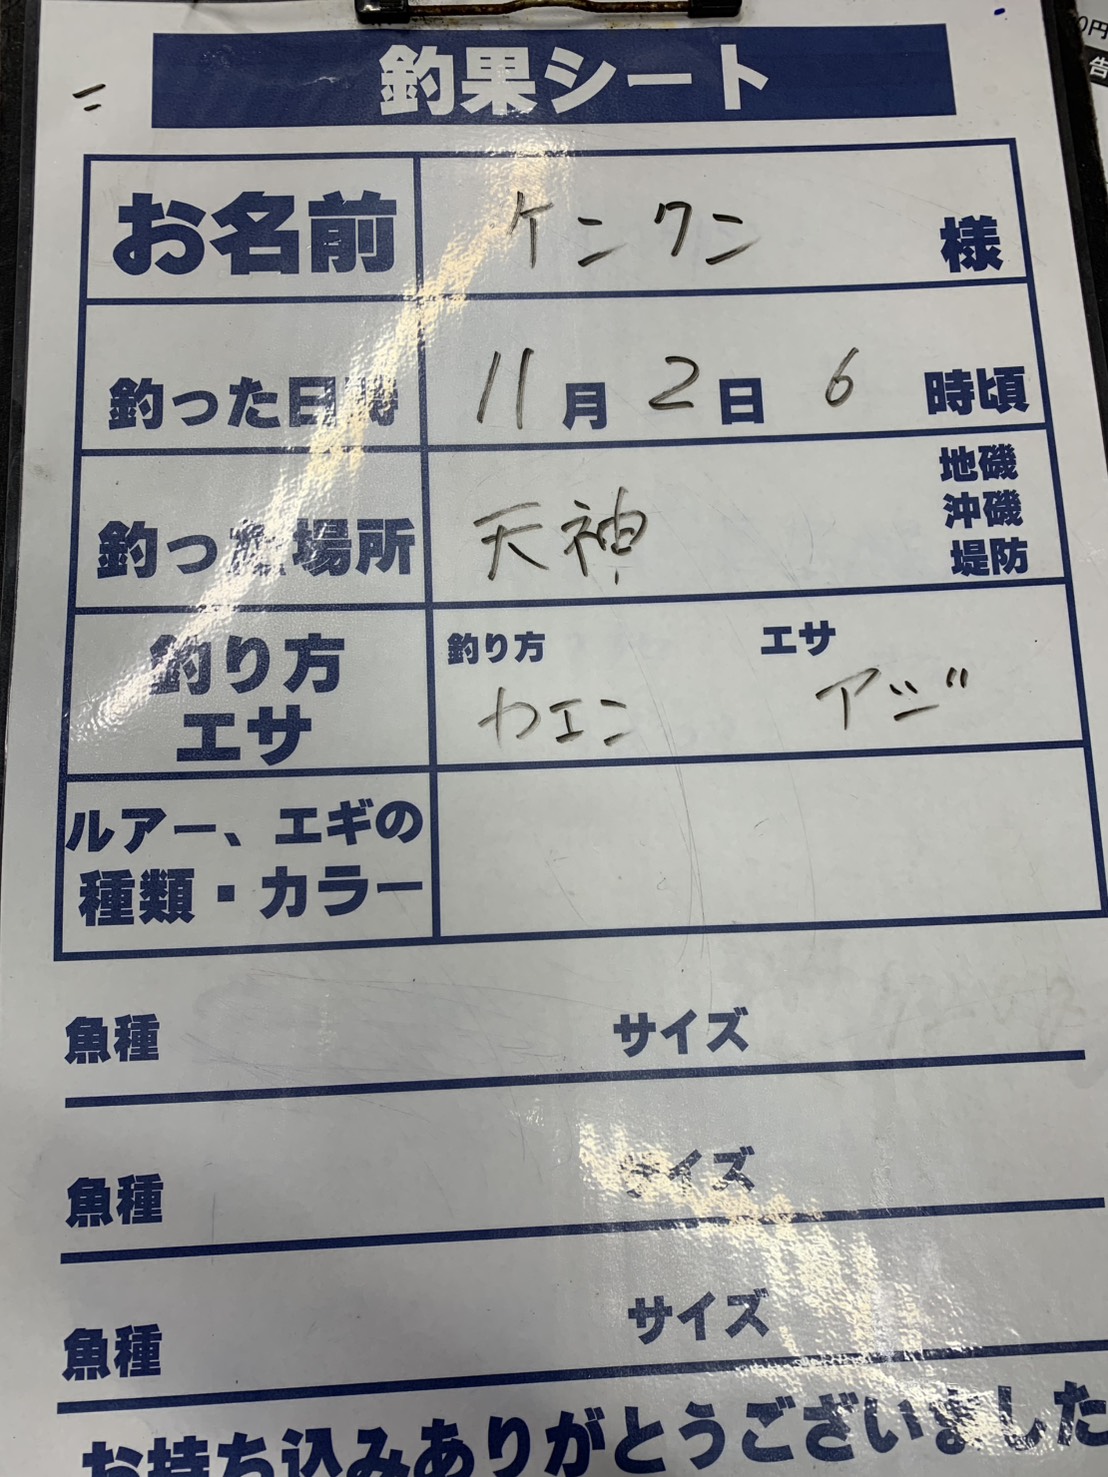 釣果シート
お名前 ケンワン 様
釣った日時 11月2日 6時頃
釣った場所 天神 地磯
沖磯
堤防
釣り方
エサ
釣り方 エサ
カエン アジ
ルアー、エギの
種類・カラー
魚種 サイズ
魚種 サイズ
魚種 サイズ
お持ち込みありがとうございました